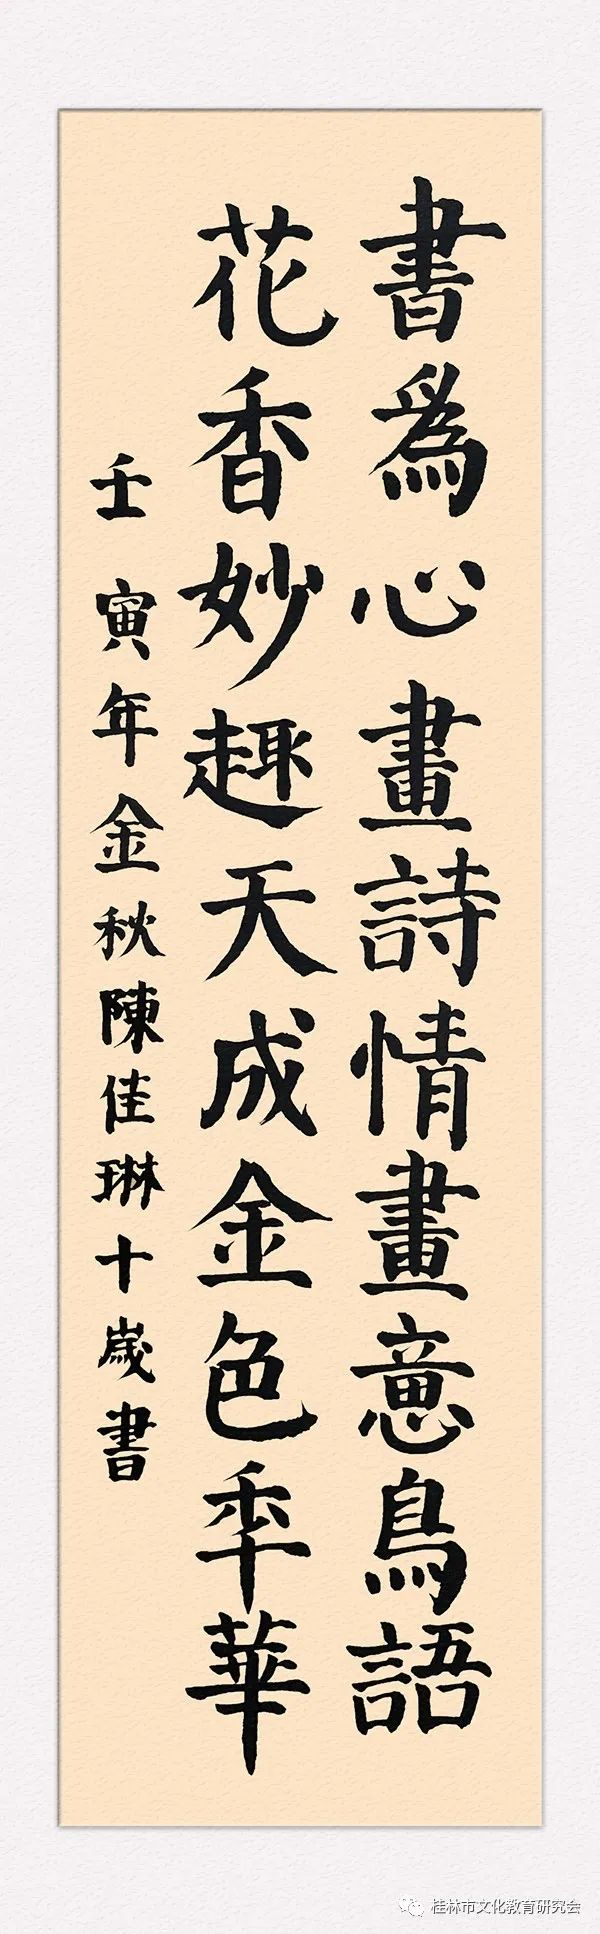 書為心畫詩情畫意鳥語
花香妙趣天成金色年華
壬寅年金秋陳佳琳十歲書
桂林市文化教育研究会